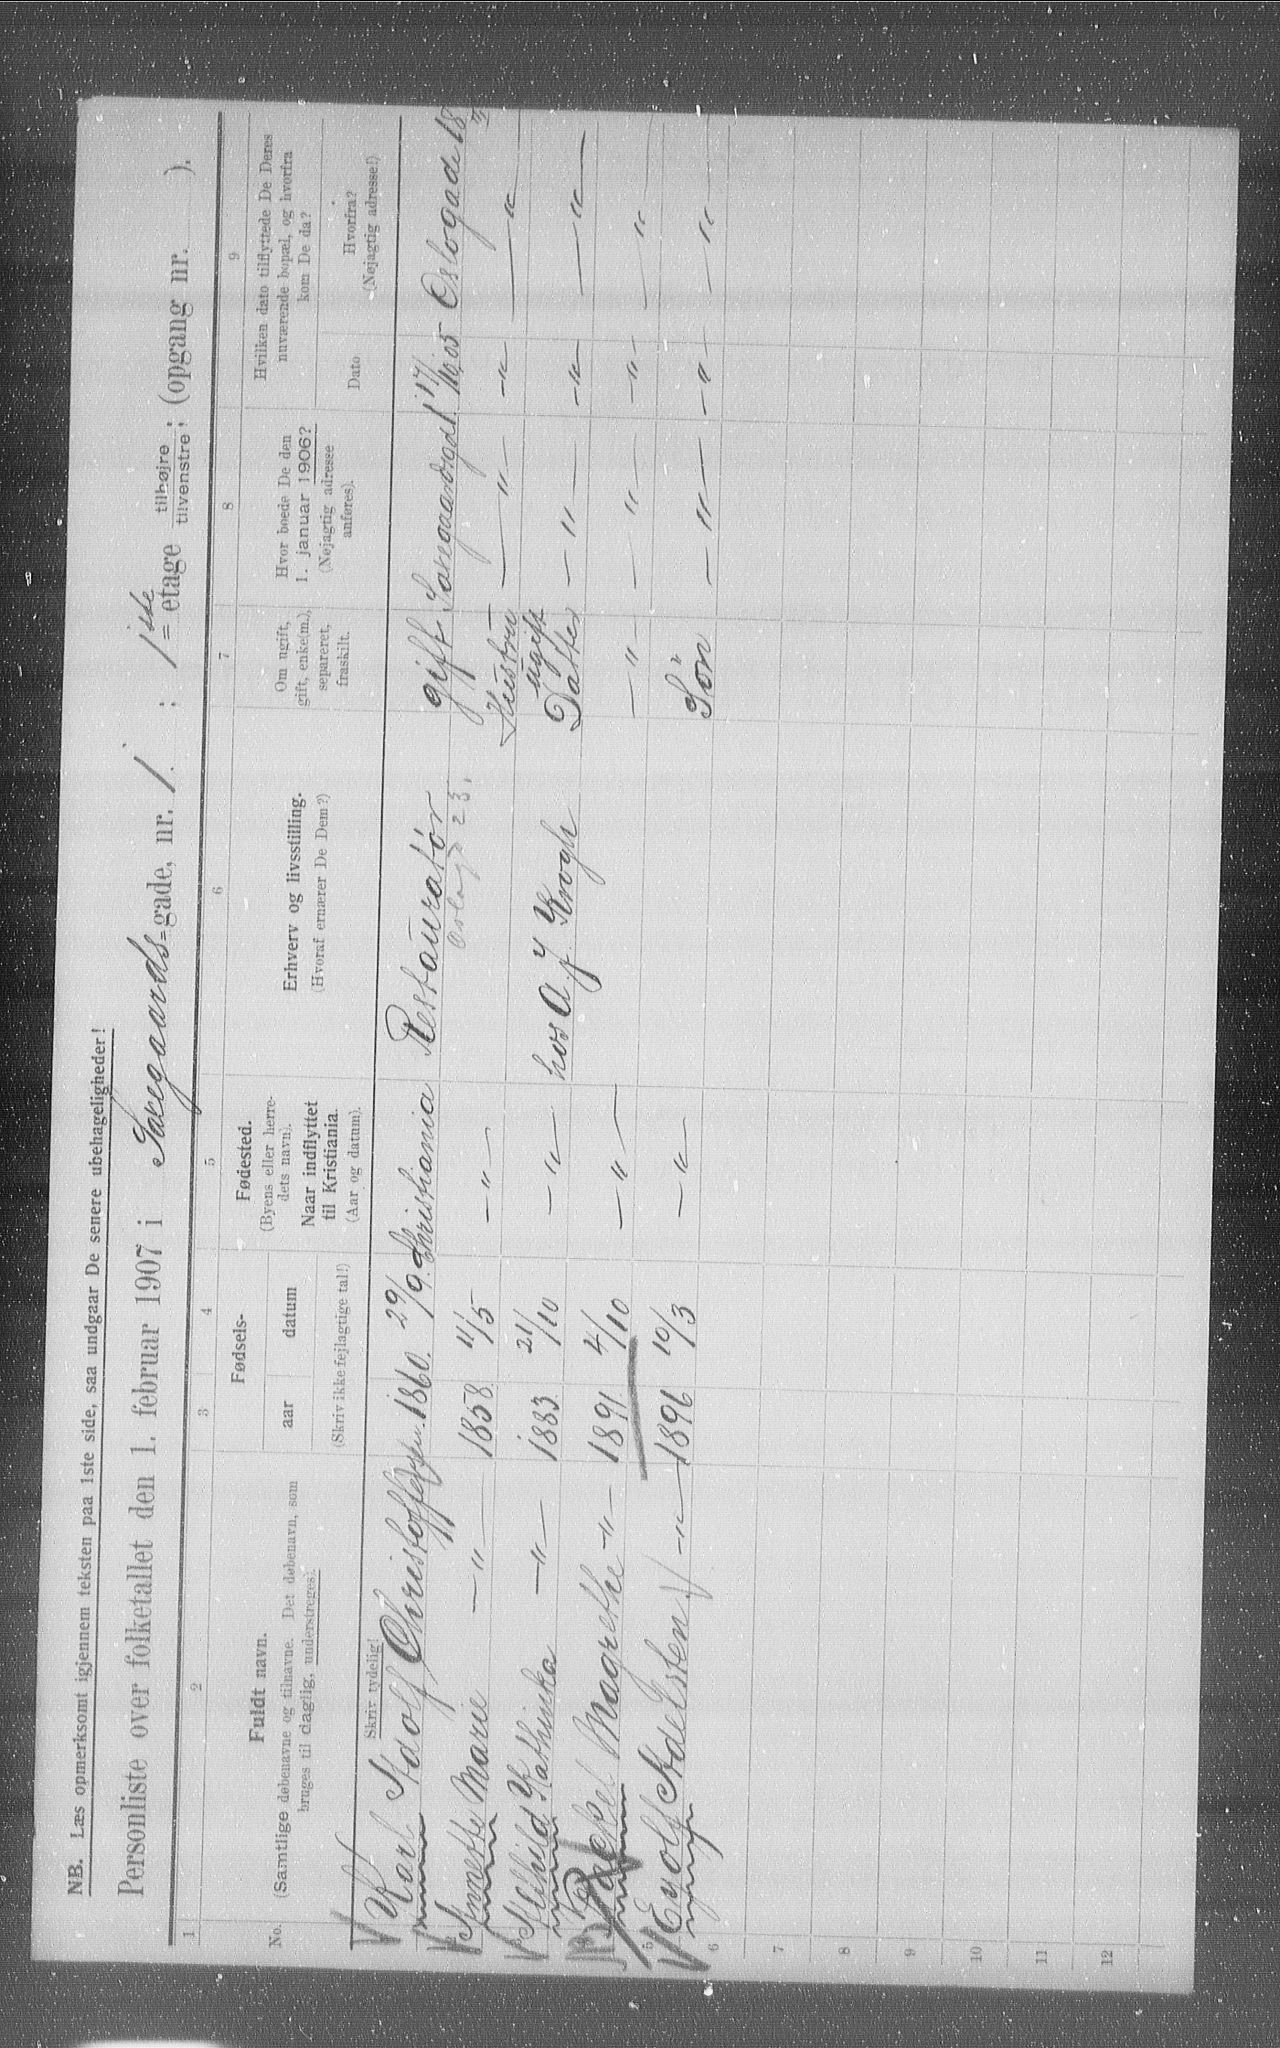 NB. Læs opmerksomt igjennem teksten paa 1ste side, saa undgaar De senere ubehageligheder!
Personliste over folketallet den 1. februar 1907 i Saxegaards=gade, nr. 1. ; 1ste = etage tilhøjre / tilvenstre ; (opgang nr. ).
1 2 3 4 5 6 7 8 9
No. Fuldt navn. (Samtlige døbenavne og tilnavne. Det døbenavn, som bruges til daglig, understreges). Skriv tydelig!
Fødsels- aar datum (Skriv ikke fejlagtige tal!)
Fødested. (Byens eller herredets navn). Naar indflyttet til Kristiania. (Aar og datum).
Erhverv og livsstilling. (Hvoraf ernærer De Dem?)
Om ugift, gift, enke(m.), separeret, fraskilt.
Hvor boede De den 1. januar 1906? (Nøjagtig adresse anføres).
Hvilken dato tilflyttede De Deres nuværende bopæl, og hvorfra kom De da? Dato Hvorfra? (Nøjagtig adresse!)
Karl Adolf Christoffersen. 1860. 29/9. Christiania Restauratør gift Saxegaardsgd 1 17/10.05 Oslogade 18
Oslogd 23.
2 Annette Marie —"— 1858. 11/5 —"— Hustru —"— —"— —"—
3 Alfhild Kathinka —"— 1883. 21/10 —"— hos A. J. Krogh ugift Datter —"— —"— —"—
Magrethe —"— 1891. 4/10 —"— —"— —"— —"— —"—
5 Eyolf Adelsten —"— 1896 10/3 —"— Søn —"— —"— —"—
6
7
8
9
10
11
12